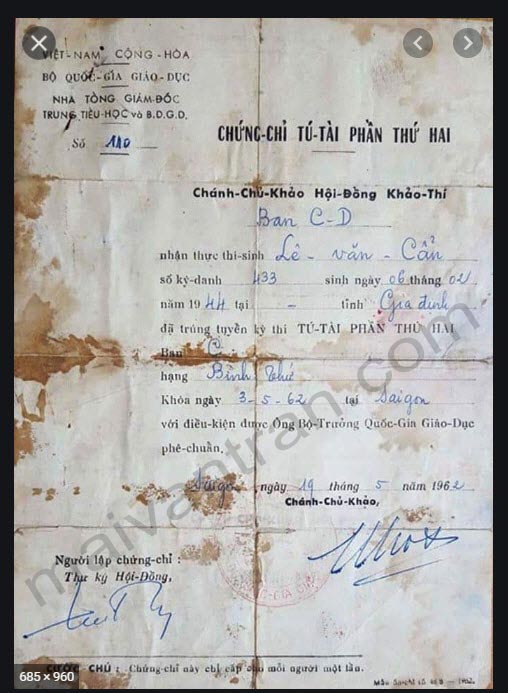 VIỆT-NAM CỘNG-HÒA
BỘ QUỐC-GIA GIÁO-DỤC
NHA TỔNG GIÁM-ĐỐC
TRUNG TIỂU-HỌC và B.D.G.D.
Số 110
CHỨNG-CHỈ TÚ-TÀI PHẦN THỨ HAI
Chánh-Chủ-Khảo Hội-Đồng Khảo-Thí
Ban C-D
nhận thực thí-sinh Lê - văn - Cẩn
số ký-danh 433 sinh ngày 06 tháng 02
năm 1944 tại - tỉnh Gia định
đã trúng tuyển kỳ thi TÚ-TÀI PHẦN THỨ HAI
Ban C
hạng Bình thứ
Khóa ngày 3-5-62 tại Saigon
với điều-kiện được Ông Bộ-Trưởng Quốc-Gia Giáo-Dục
phê-chuẩn.
Saigon ngày 19 tháng 5 năm 1962
Chánh-Chủ-Khảo,
Người lập chứng-chỉ :
Thư ký Hội-Đồng,
CƯỚC CHÚ : Chứng-chỉ này chỉ cấp cho mỗi người một lần.
1962.
maivantran.com
685 × 960